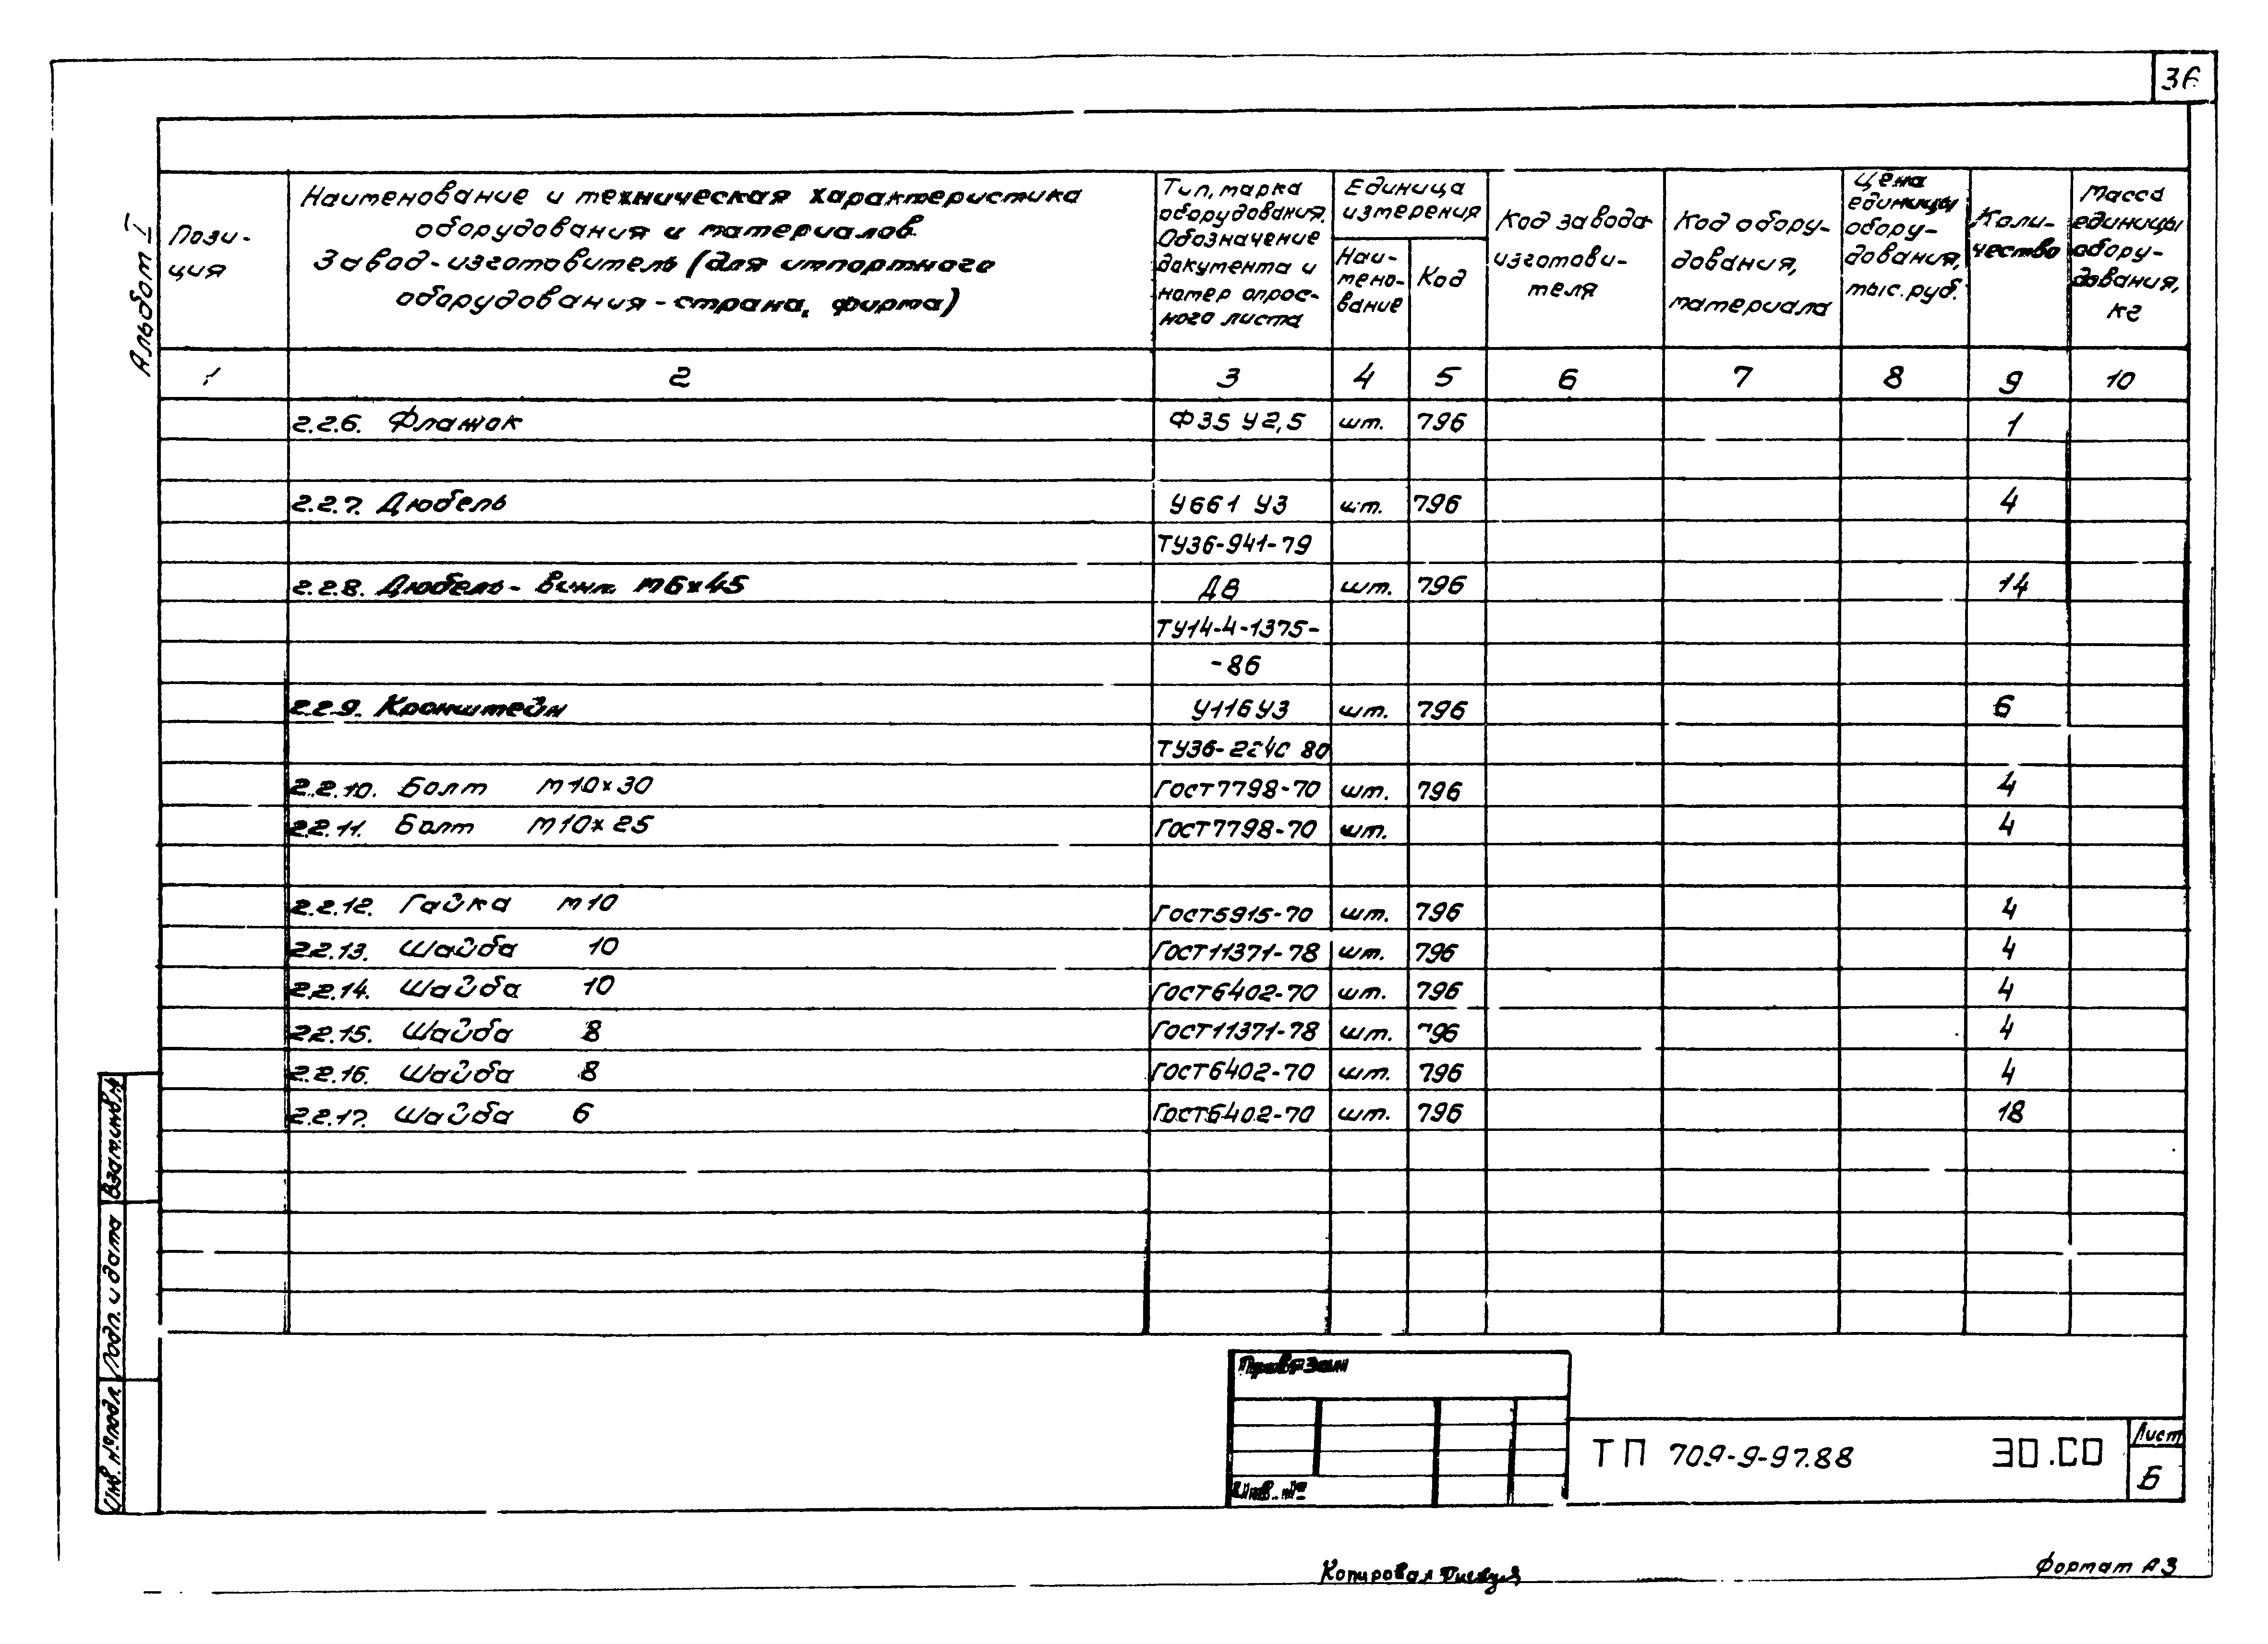 36
Альбом I
Пози-
ция
Наименование и техническая характеристика
оборудования и материалов.
Завод-изготовитель (для импортного
оборудования - страна, фирма)
Тип, марка
оборудования.
Обозначение
документа и
номер опрос-
ного листа
Единица
измерения
Наи-
мено-
вание
Код
Код завода
изготови-
теля
Код обору-
дования,
материала
Цена
единицы
обору-
дования,
тыс. руб.
Коли-
чество
Масса
единицы
обору-
дования,
кг
1 2 3 4 5 6 7 8 9 10
2.2.6. Флажок Ф35 У2,5 шт. 796 1
2.2.7. Дюбель У661 У3 шт. 796 4
ТУ36-941-79
2.2.8. Дюбель-винт М6х45 ДВ шт. 796 14
ТУ14-4-1375-
-86
2.2.9. Кронштейн У116У3 шт. 796 6
80
2.2.10. Болт М10х30 ГОСТ7798-70 шт. 796 4
2.2.11. Болт М10х25 ГОСТ7798-70 шт. 4
2.2.12. Гайка М10 ГОСТ5915-70 шт. 796 4
2.2.13. Шайба 10 ГОСТ11371-78 шт. 796 4
2.2.14. Шайба 10 ГОСТ6402-70 шт. 796 4
2.2.15. Шайба 8 ГОСТ11371-78 шт. 796 4
2.2.16. Шайба 8 ГОСТ6402-70 шт. 796 4
2.2.17. Шайба 6 ГОСТ6402-70 шт. 796 18
Взам.инв.№
Подп. и дата
Инв. № подл.
Привязан
Инв. №
ТП 709-9-97.88 ЭО.СО
Лист
6
Копировал
Формат А3